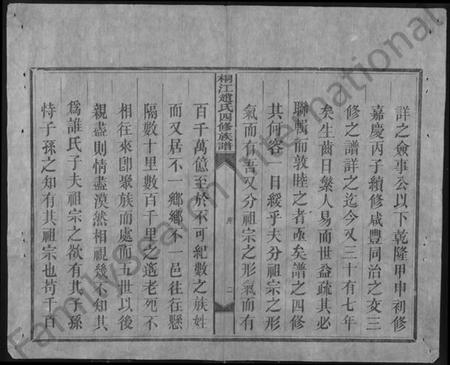 詳之僉事公以下乾隆甲申初修
嘉慶丙子續修咸豐同治之交三
修之譜詳之迄今又三十有七年
矣生齒日蘩人易而世益疏其必
聯輯而敦睦之者亟矣譜之四修
其何容一日緩乎夫分祖宗之形
氣而有吾又分祖宗之形氣而有
桐江趙氏四修族譜
序
二
百千萬億至於不可紀數之族姓
而又居不一鄉鄉不一邑往往懸
隔數十里數百千里之遙老死不
相往來卽聚族而處而五世以後
親盡則情盡漠然相視幾不知其
爲誰氏子夫祖宗之欲有其子孫
恃子孫之知有其祖宗也苟千百
FamilySearch International